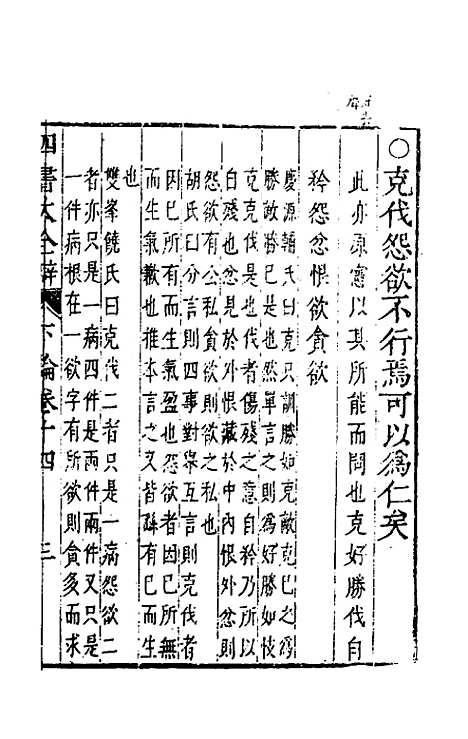 ○克伐怨欲不行焉可以爲仁矣
此亦原憲以其所能而問也克好勝伐自
矜怨忿恨欲貪欲
慶源輔氏曰克只訓勝如克敵克己之爲
勝敵勝己是也然單言之則爲好勝如忮
克克伐是也伐者傷殘之意自矜乃所以
自殘也忿見於外恨藏於中內恨外忿則
怨欲有公私貪欲則欲之私也
胡氏曰分言則四事對舉互言則克伐者
因己所有而生氣盈也怨欲者因己所無
而生氣歉也推本言之又皆緣有己而生
也
雙峯饒氏曰克伐二者只是一病怨欲二
者亦只是一病四件是兩件兩件又只是
一件病根在一欲字有所欲則貪多而求
四書大全辯 下論卷十四 三